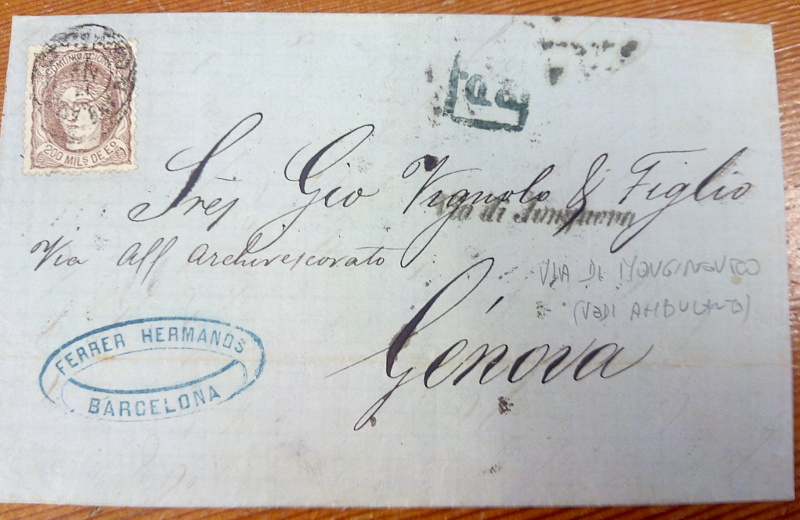 COMUNICACIONES
200 MILS DE E.
P.D.
Sres Gio Vignolo & Figlio
Via di Junquera
Via All Archivescovato
VIA DI MONGINEVRO
(VEDI AMBULANTE)
Génova
FERRER HERMANOS
BARCELONA